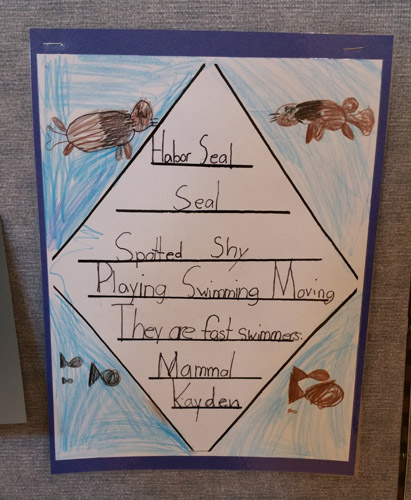 Habor Seal
Seal
Spotted Shy
Playing Swimming Moving
They are fast swimmers.
Mammal
Kayden